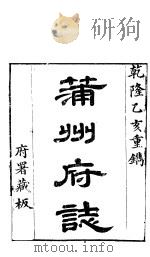 试读
狗
乾隆乙亥重鐫
蒲州府誌
府署藏板
www.mtoou.info/